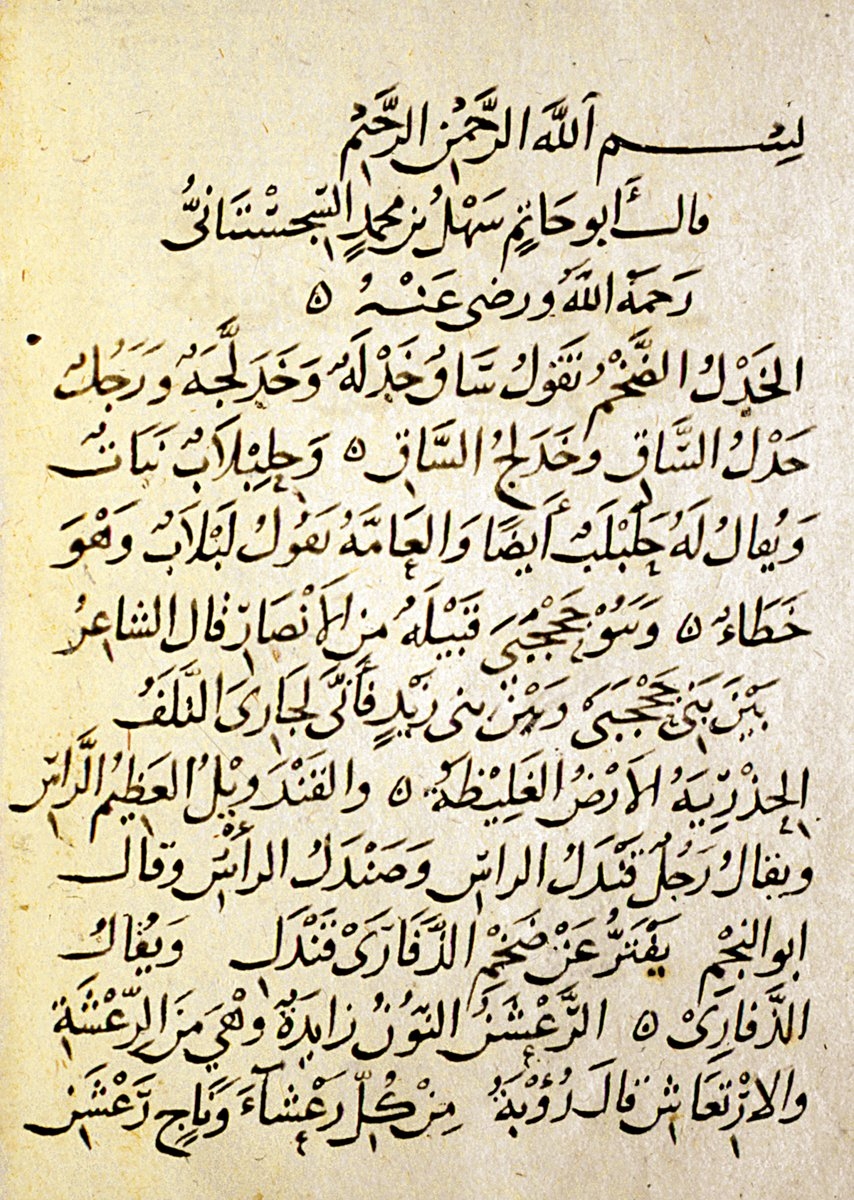 بِسْم اللَّه الرَّحْمٰنِ الرَّحِيْمِ
قال أبو حَاتِمٍ سَهْلُ بن محمدٍ السِّجِسْتَنانىُّ
رَحمَهُ اللَّهُ ورضى عَنْهُ ٥
الخَدْلُ الضَّخْمُ تَقولُ سَّاقٌ خَدْلَةٌ وَخَدَلَّجَةٌ وَرَجُلٌ
خَدْلُ السَّاقِ وخَدَلجُ السَّاقِ ٥ وَحِلِبْلَابٌ نَبَاتٌ
وَيُقالُ لَهُ حُلَّبْلَبٌ أَيضًا وَالعَامَّةُ يَقُولُ لَبْلَابٌ وَهْوَ
خَطَاءٌ ٥ وَبَنُوْ جَحْجَبَى قَبِيْلَةٌ مِنَ الأَنْصَارِ قال الشاعِرُ
بَيْنَ بَنِى جَحْجَبَى وَبَيْنَ بنى زَيْدٍ فَأَنَّى لِجَارِىَ التَّلَفُ
الحِذْرِيَةُ الأَرْضُ الغَلِيْظَةُ ٥ والقَنْدَوِيْلُ العَظِيْمُ الرَّاسِ
ويقالُ رَجُلٌ قَنْدَلُ الراسِ وَصَنْدَلُ الرأْسِ وقال
ابو النَّجْمِ يَفْتَرُّ عَنْ ضَخْمِ الذَّفَارَىْ قَنْدَلِ وَيُقالُ
الذَّفارِىْ ٥ الرَّعْشَنُ النّوْنُ زايِدَةٌ وهْيَ مِنَ الرِّعْشَةِ
والارْتِعَاشِ قالَ رُؤْبَةُ مِنْ كُلِّ رَعْشآءَ وَنَاجٍ رَّعْشَنِ